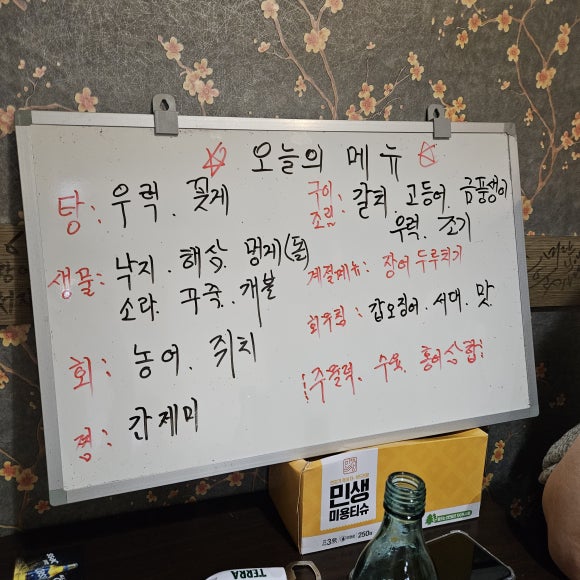 ☆ 오늘의 메뉴 ☆
탕: 우럭. 꽃게
생물: 낙지. 해삼. 멍게(돌)
소라. 꾸죽. 개불
회: 농어. 쥐치
찜: 간제미
구이
조림: 갈치. 고등어. 금풍생이
우럭. 조기
계절메뉴: 장어 두루치기
회무침: 갑오징어. 서대. 맛
수육. 홍어삼합
민생
미용티슈
250
TERRA